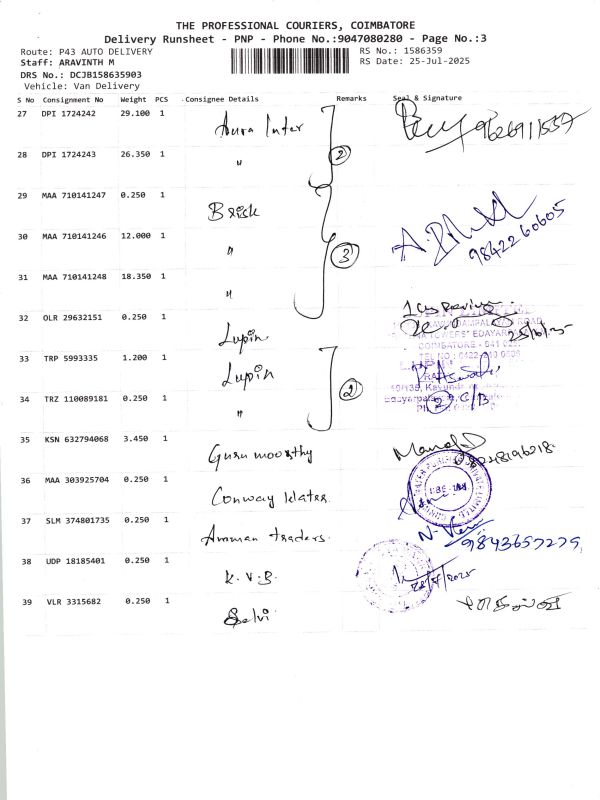 THE PROFESSIONAL COURIERS, COIMBATORE
Delivery Runsheet - PNP - Phone No.:9047080280 - Page No.:3
Route: P43 AUTO DELIVERY RS No.: 1586359
Staff: ARAVINTH M RS Date: 25-Jul-2025
DRS No.: DCJB158635903
Vehicle: Van Delivery
S No Consignment No Weight PCS Consignee Details Remarks Seal & Signature
27 DPI 1724242 29.100 1 Aura Inter 9626911557
28 DPI 1724243 26.350 1 " 2
29 MAA 710141247 0.250 1 Brisk
30 MAA 710141246 12.000 1 " 3 9842260605
31 MAA 710141248 18.350 1 "
32 OLR 29632151 0.250 1 Lupin
COIMBATORE - 641
33 TRP 5993335 1.200 1 Lupin
34 TRZ 110089181 0.250 1 " 2
35 KSN 632794068 3.450 1 Guru moorthy
36 MAA 303925704 0.250 1 Conway Water
37 SLM 374801735 0.250 1 Amman traders. 9843657279
38 UDP 18185401 0.250 1 K.V.B.
39 VLR 3315682 0.250 1 Selvi